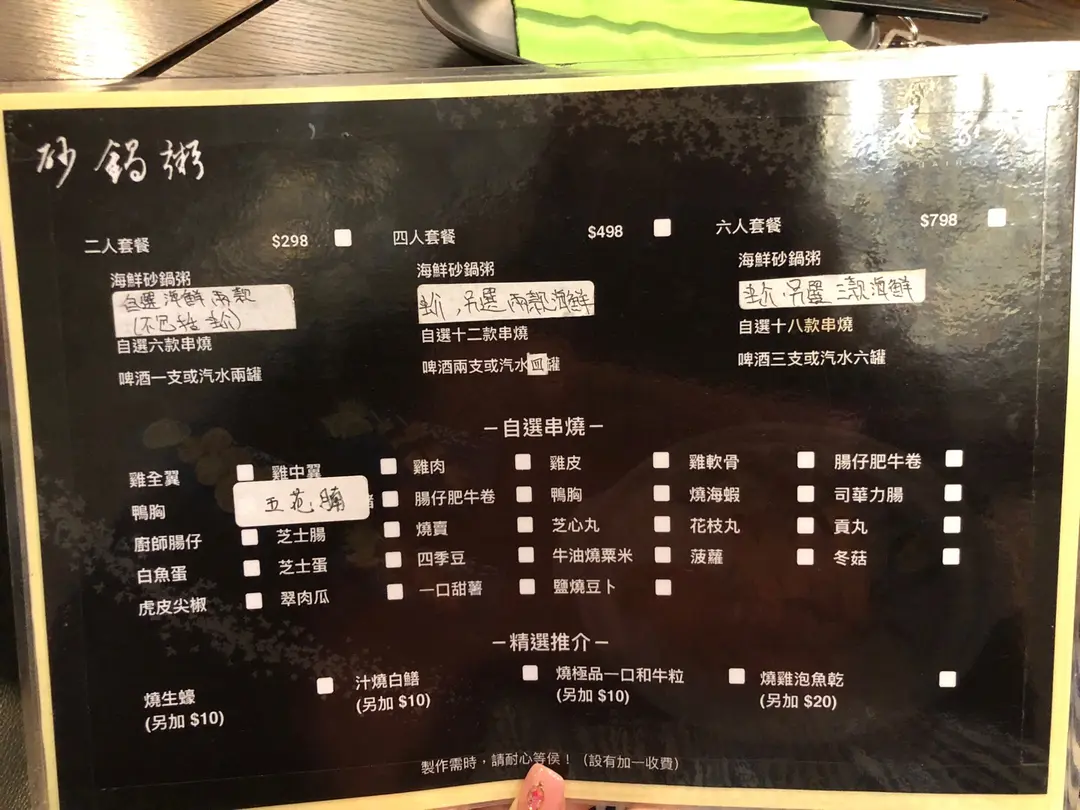 砂鍋粥
二人套餐 $298
海鮮砂鍋粥
自選海鮮兩款
(不包括
自選六款串燒
啤酒一支或汽水兩罐
四人套餐 $498
海鮮砂鍋粥
另選兩款海鮮
自選十二款串燒
啤酒兩支或汽水四罐
六人套餐 $798
海鮮砂鍋粥
另選三款海鮮
自選十八款串燒
啤酒三支或汽水六罐
–自選串燒–
雞全翼 雞中翼 雞肉 雞皮 雞軟骨 腸仔肥牛卷
鴨胸 五花腩 腸仔肥牛卷 鴨胸 燒海蝦 司華力腸
廚師腸仔 芝士腸 燒賣 芝心丸 花枝丸 貢丸
白魚蛋 芝士蛋 四季豆 牛油燒粟米 菠蘿 冬菇
虎皮尖椒 翠肉瓜 一口甜薯 鹽燒豆卜
–精選推介–
燒生蠔 汁燒白鱔 燒極品一口和牛粒 燒雞泡魚乾
(另加 $10) (另加 $10) (另加 $10) (另加 $20)
製作需時，請耐心等侯！（設有加一收費）